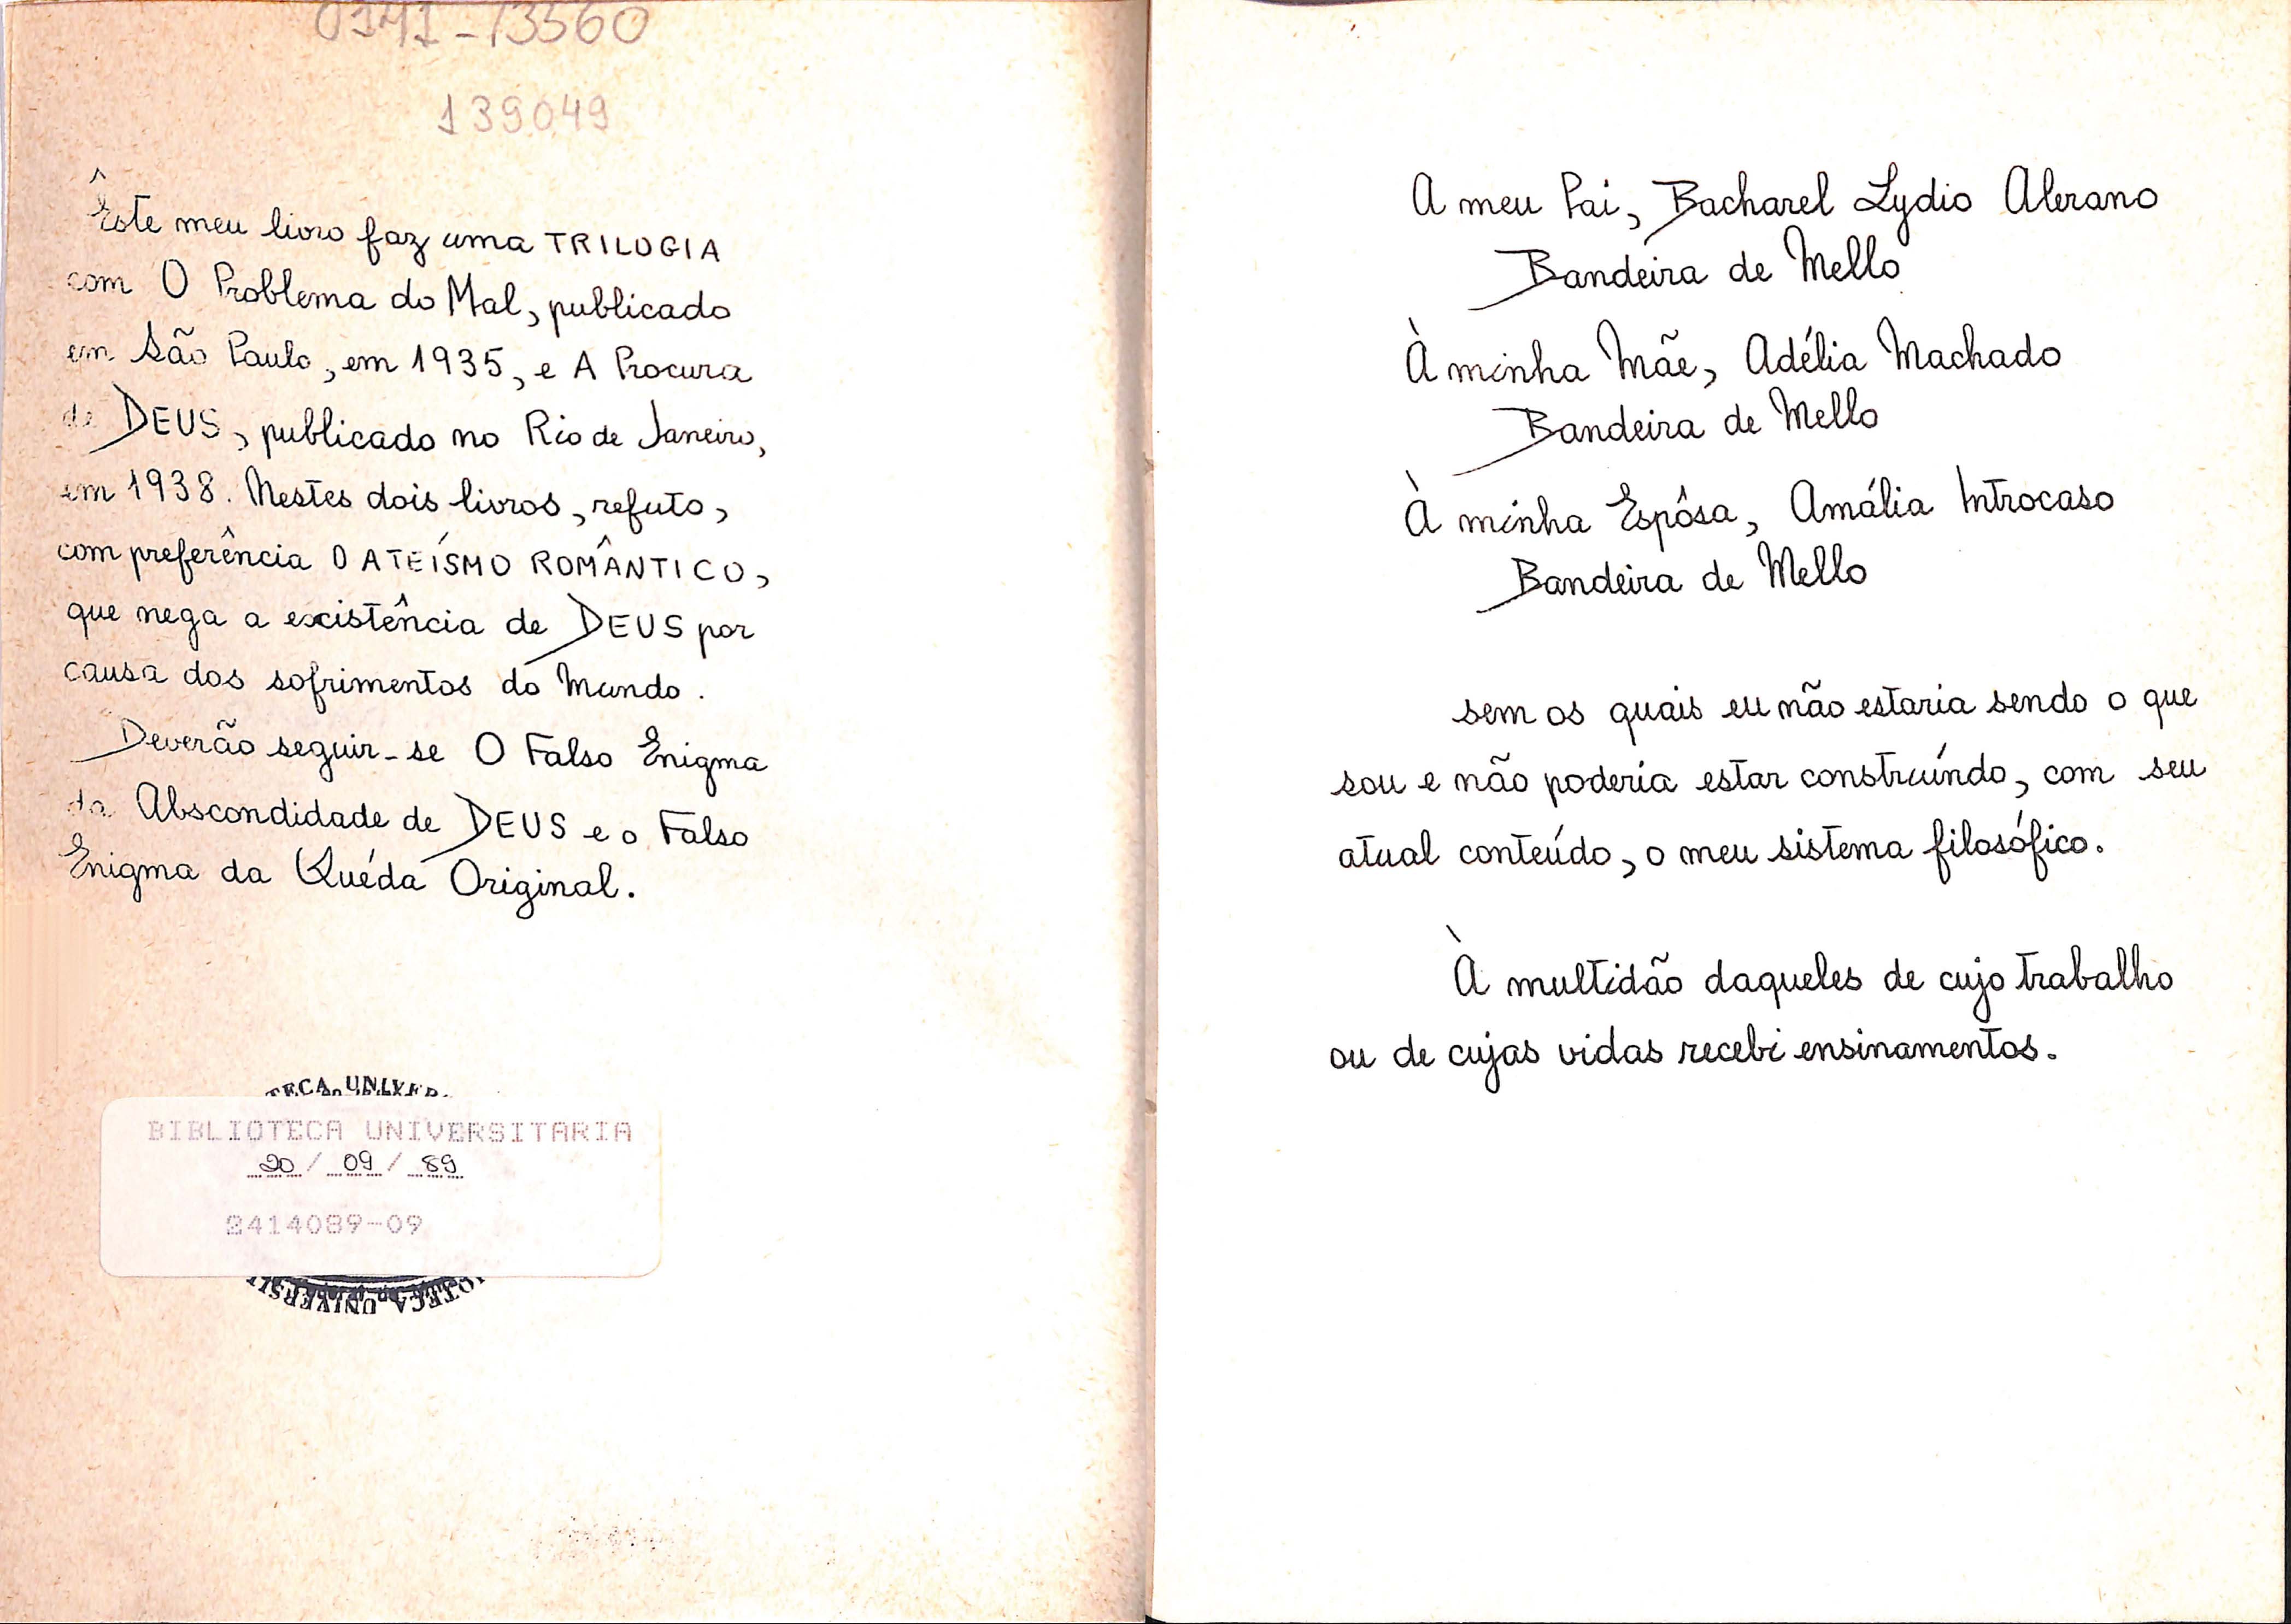 0141-13560
139049
Êste meu livro faz uma TRILOGIA
com O Problema do Mal, publicado
em São Paulo, em 1935, e A Procura
de DEUS, publicado no Rio de Janeiro,
em 1938. Nestes dois livros, refuto,
com preferência O ATEÍSMO ROMÂNTICO,
que nega a existência de DEUS por
causa dos sofrimentos do Mundo.
Deverão seguir-se O Falso Enigma
da Abscondidade de DEUS e o Falso
Enigma da Quéda Original.
TECA UNIVER
BIBLIOTECA UNIVERSITARIA
20/09/89
2414089-09
IOTECA UNIVERSI
A meu Pai, Bacharel Lydio Alerano
Bandeira de Mello
À minha Mãe, Adélia Machado
Bandeira de Mello
À minha Espôsa, Amália Introcaso
Bandeira de Mello
sem os quais eu não estaria sendo o que
sou e não poderia estar construíndo, com seu
atual conteúdo, o meu sistema filosófico.
À multidão daqueles de cujo trabalho
ou de cujas vidas recebi ensinamentos.